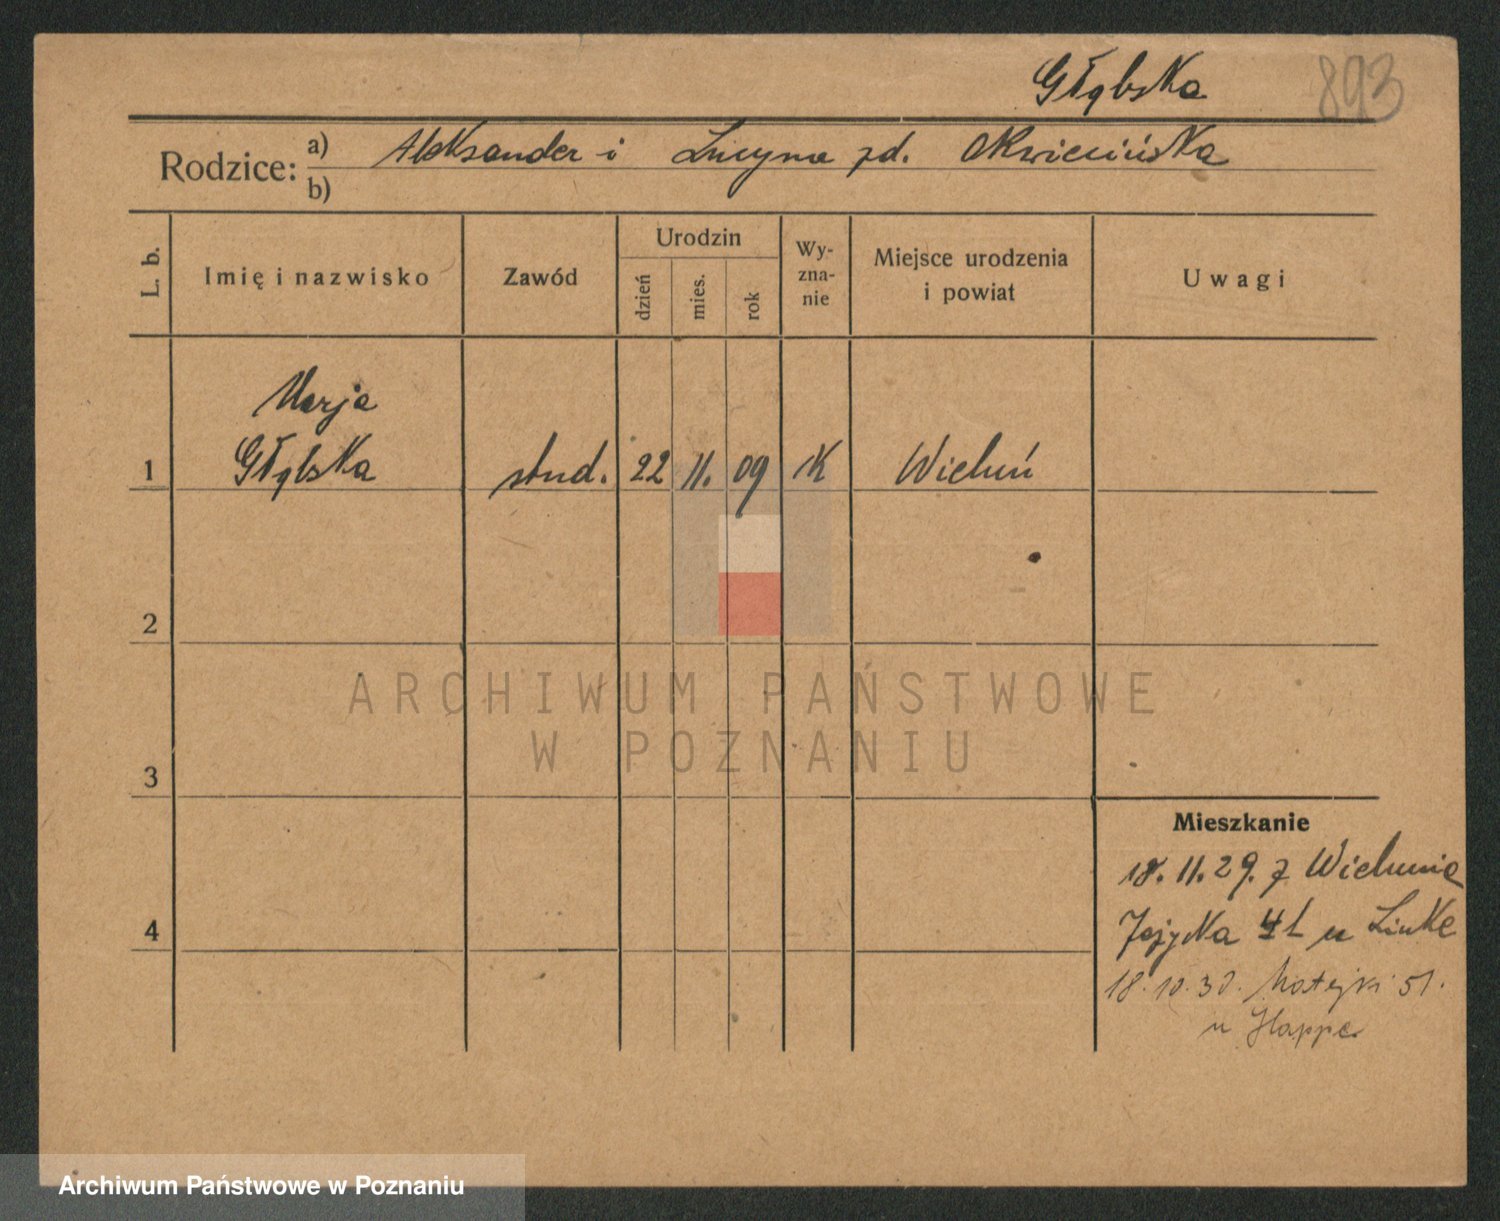 Głąbska 893
Rodzice: a) Aleksander i Lucyna zd. Okwiecińska
b)
L. b. Imię i nazwisko Zawód Urodzin dzień mies. rok Wy-zna-nie Miejsce urodzenia i powiat Uwagi
Marja
1 Głąbska stud. 22 11. 09 K Wieluń
2
3
ARCHIWUM PAŃSTWOWE
W POZNANIU
Mieszkanie
18.11.29. z Wielunia
4 u Linke
18.10.30. Matejki 51.
u Happe
Archiwum Państwowe w Poznaniu